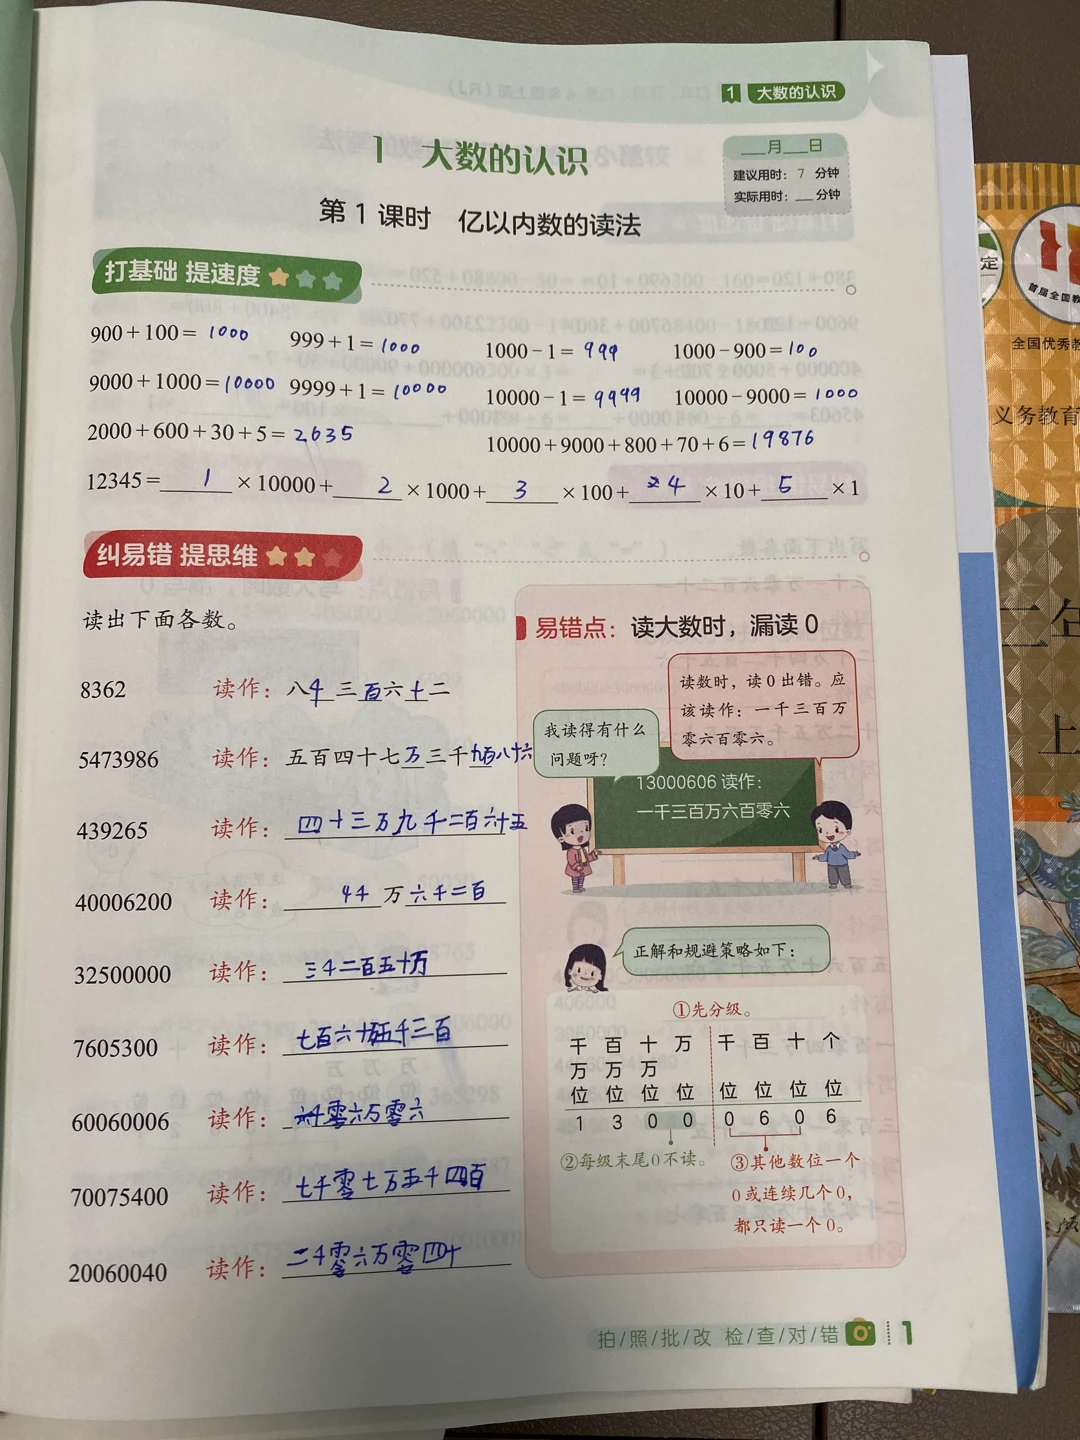 1 大数的认识
1 大数的认识
___月___日
建议用时: 7 分钟
实际用时: ___分钟
第 1 课时 亿以内数的读法
打基础 提速度
900+100= 1000 999+1= 1000 1000-1= 999 1000-900= 100
9000+1000= 10000 9999+1= 10000 10000-1= 9999 10000-9000= 1000
2000+600+30+5= 2635 10000+9000+800+70+6= 19876
12345= 1 ×10000+ 2 ×1000+ 3 ×100+ 4 ×10+ 5 ×1
纠易错 提思维
读出下面各数。
8362 读作: 八千三百六十二
5473986 读作: 五百四十七万三千九百八十六
439265 读作: 四十三万九千二百六十五
40006200 读作: 4千万六千二百
32500000 读作: 三千二百五十万
7605300 读作: 七百六十万五千三百
60060006 读作: 六千零六万零六
70075400 读作: 七千零七万五千四百
20060040 读作: 二千零六万零四十
易错点: 读大数时,漏读 0
读数时,读 0 出错。应
该读作:一千三百万
零六百零六。
我读得有什么
问题呀?
13000606 读作:
一千三百万六百零六
正解和规避策略如下:
①先分级。
千 百 十 万 千 百 十 个
万 万 万
位 位 位 位 位 位 位 位
1 3 0 0 0 6 0 6
②每级末尾0不读。
③其他数位一个
0或连续几个0,
都只读一个0。
拍/照/批/改 检/查/对/错
1
定
首届全国教
全国优秀教
义务教育
二年
上